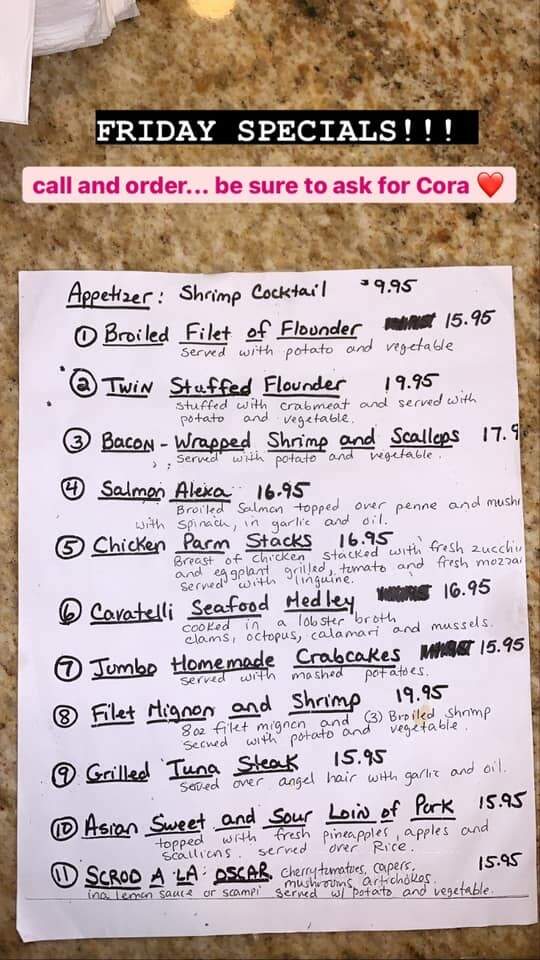 FRIDAY SPECIALS!!!
call and order... be sure to ask for Cora ❤️
Appetizer: Shrimp Cocktail $9.95
① Broiled Filet of Flounder 15.95
served with potato and vegetable
② Twin Stuffed Flounder 19.95
stuffed with crabmeat and served with
potato and vegetable.
③ Bacon-Wrapped Shrimp and Scallops 17.9
served with potato and vegetable.
④ Salmon Alexa 16.95
Broiled Salmon topped over penne and mushr
with spinach, in garlic and oil.
⑤ Chicken Parm Stacks 16.95
Breast of chicken stacked with fresh zucchi
and eggplant grilled, tomato and fresh mozza
served with linguine.
⑥ Cavatelli Seafood Medley 16.95
cooked in a lobster broth
clams, octopus, calamari and mussels.
⑦ Jumbo Homemade Crabcakes 15.95
served with mashed potatoes.
⑧ Filet Mignon and Shrimp 19.95
8oz filet mignon and (3) Broiled shrimp
served with potato and vegetable.
⑨ Grilled Tuna Steak 15.95
served over angel hair with garlic and oil.
⑩ Asian Sweet and Sour Loin of Pork 15.95
topped with fresh pineapples, apples and
scallions. served over Rice.
⑪ SCROD A LA OSCAR cherry tomatoes, capers, 15.95
mushrooms, artichokes.
in a lemon sauce or scampi served w/ potato and vegetable.